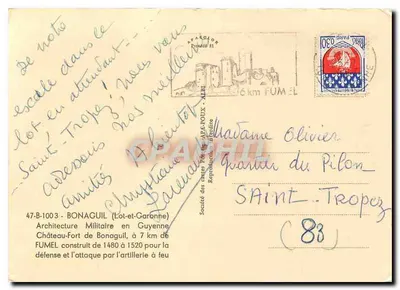 De notre
escale dans le
lot en attendant --
Saint-Tropez, nous vous
adressons nos meilleures
amitiés
47-B-1003 - BONAGUIL (Lot-et-Garonne)
Architecture Militaire en Guyenne
Château-Fort de Bonaguil, à 7 km de
FUMEL construit de 1480 à 1520 pour la
défense et l'attaque par l'artillerie à feu
6 km FUMEL
0,30
Reproduction interdite
Madame Olivier
Quartier du Pilon
SAINT-Tropez
(83)